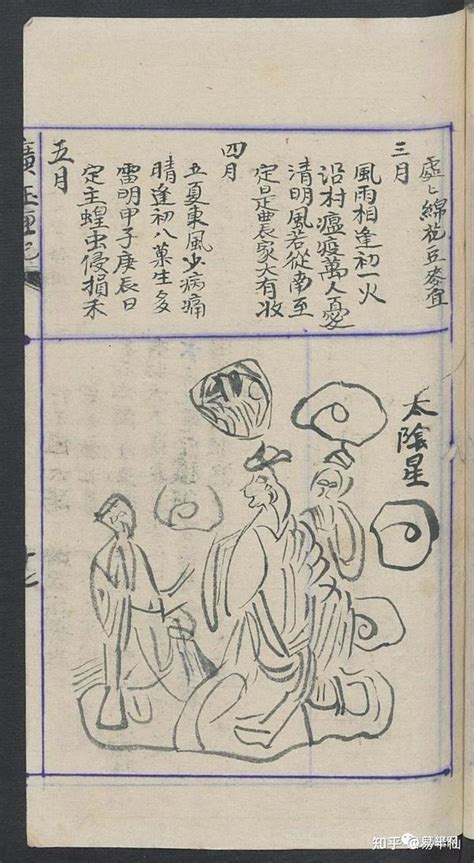 處〻綿花豆麥宜
三月
風雨相逢初一火
沿村瘟疫萬人憂
清明風若從南至
定是農家大有收
四月
立夏東風少病痛
晴逢初八菓生多
雷明甲子庚辰日
定主蝗虫侵損禾
五月
廣玉匣記
太陰星
知乎 @易半仙